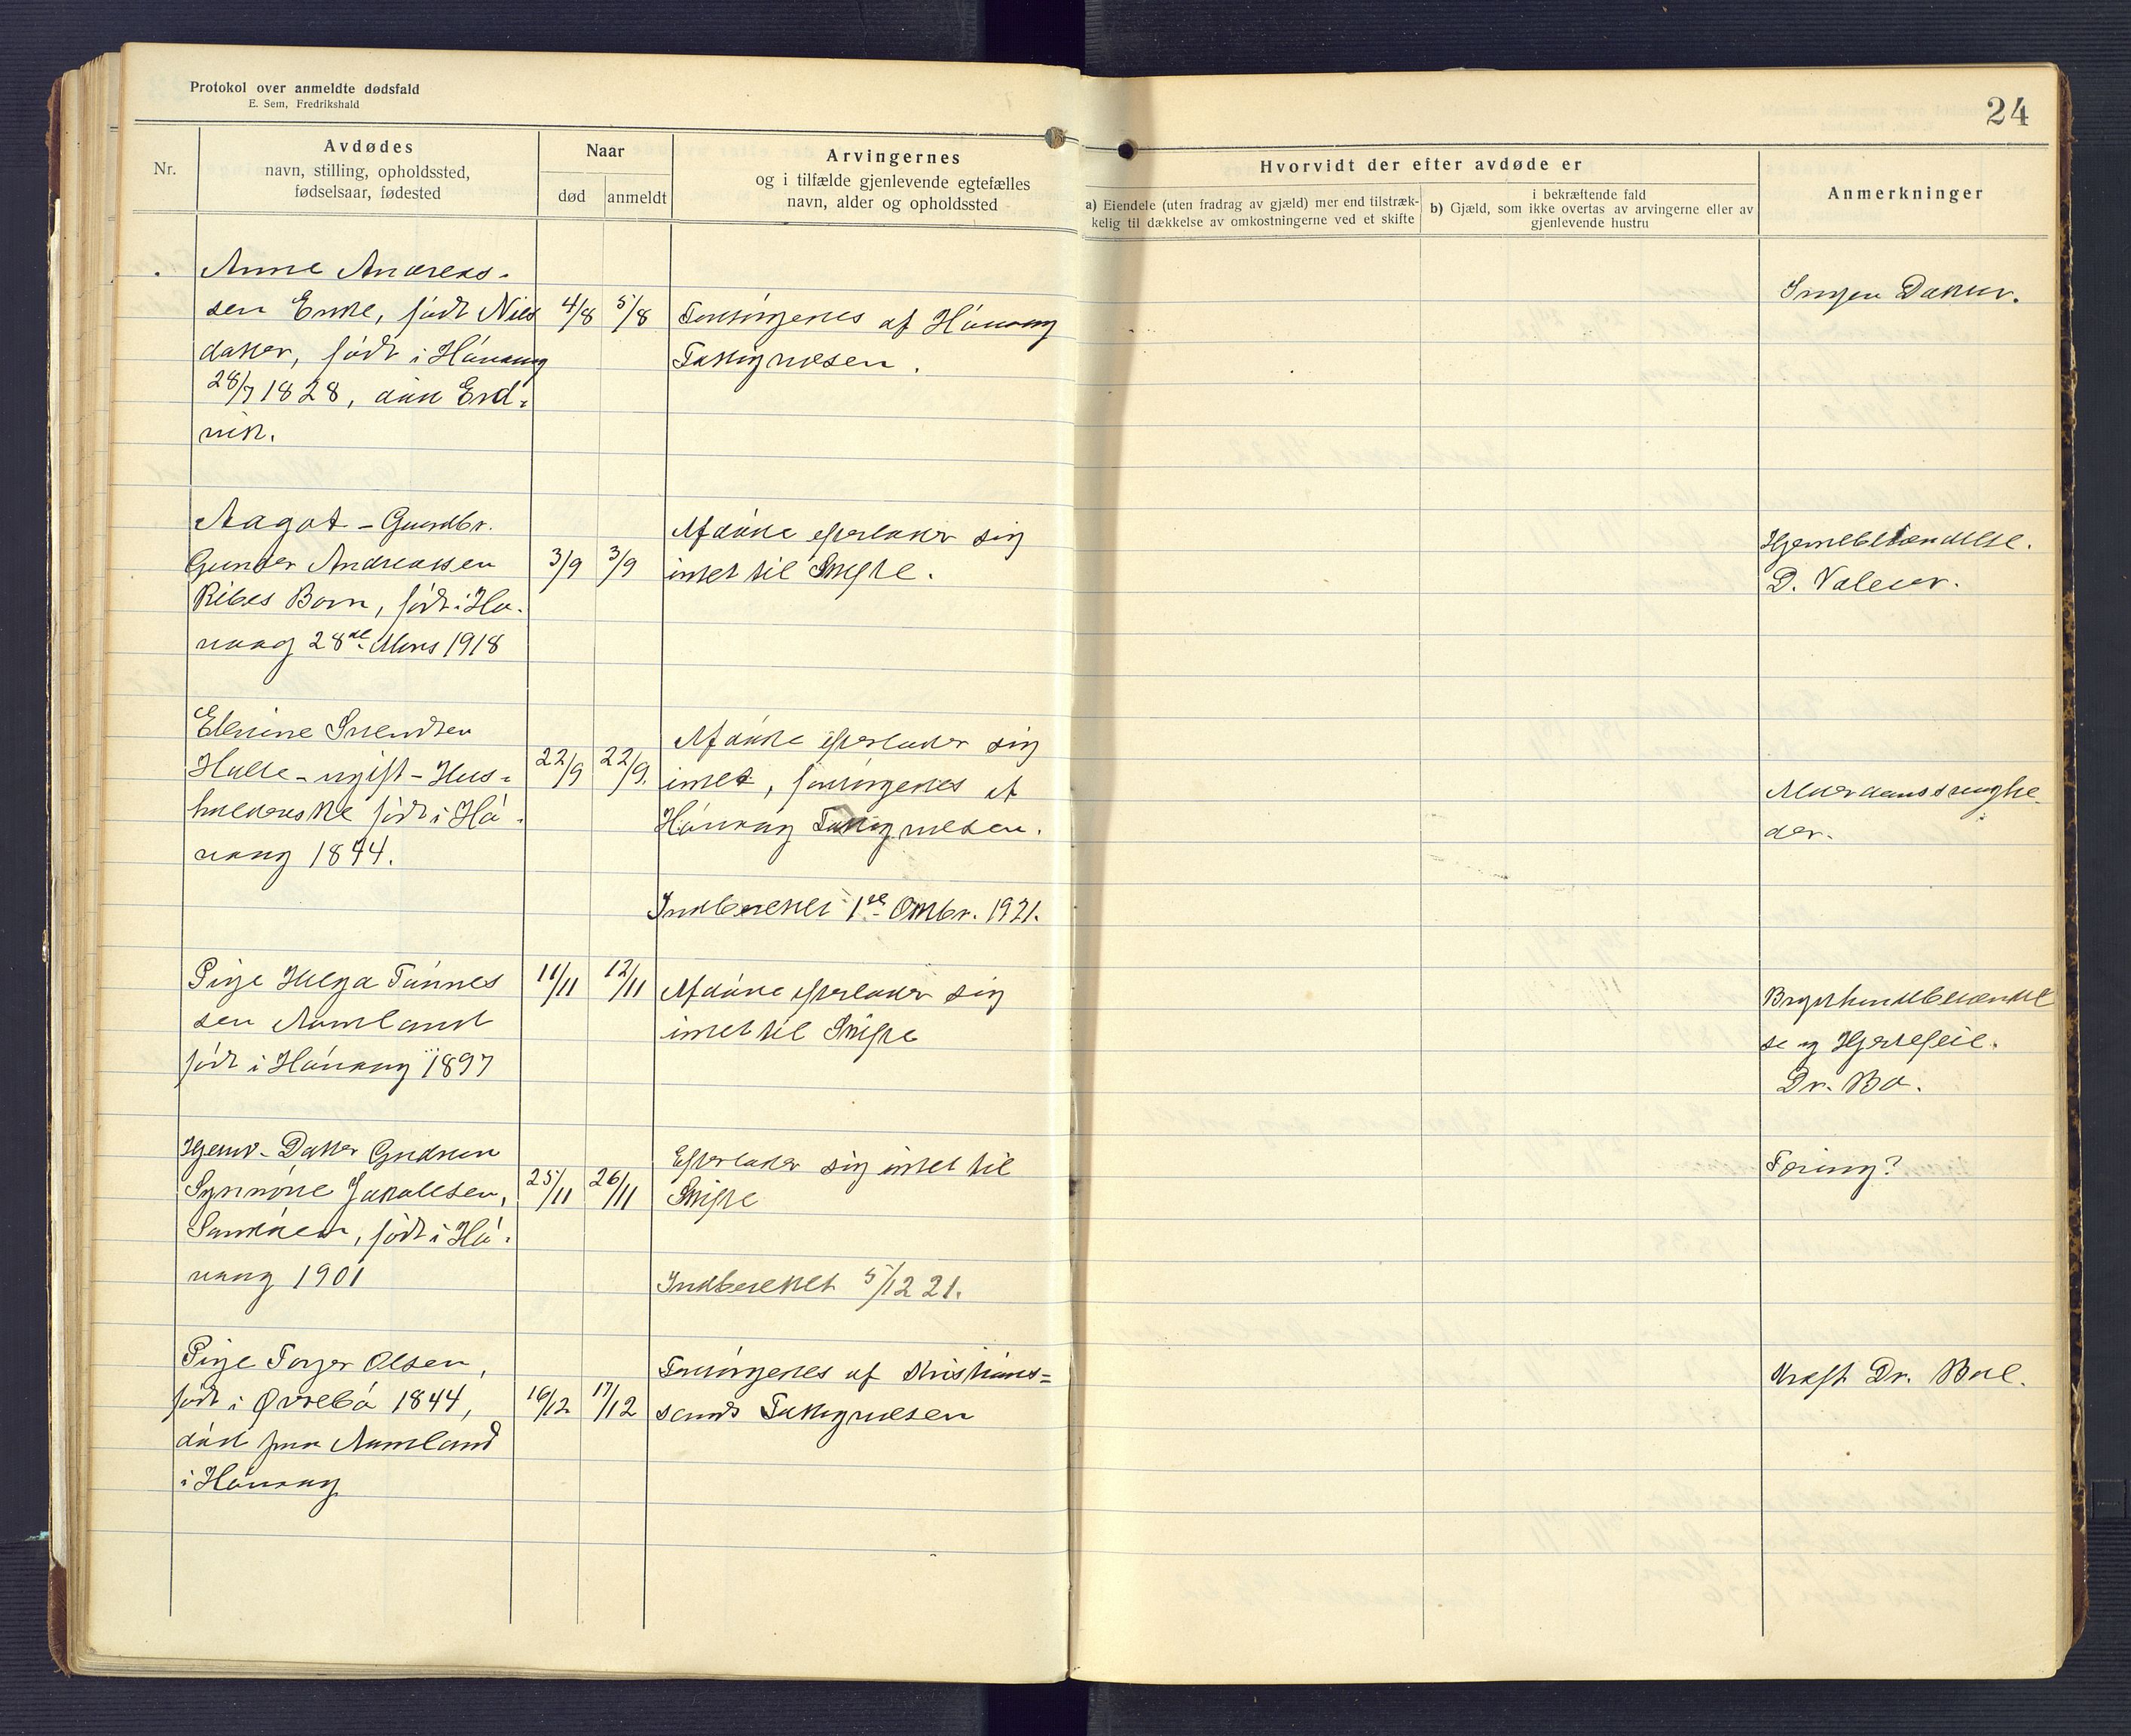 Protokol over anmeldte dødsfald
E. Sem, Fredrikshald
24
Nr.
Avdødes
navn, stilling, opholdssted,
fødselsaar, fødested
Naar
død
anmeldt
Arvingernes
og i tilfælde gjenlevende egtefælles
navn, alder og opholdssted
Hvorvidt der efter avdøde er
a) Eiendele (uten fradrag av gjæld) mer end tilstræk-
kelig til dækkelse av omkostningerne ved et skifte
i bekræftende fald
b) Gjæld, som ikke overtas av arvingerne eller av
gjenlevende hustru
Anmerkninger
Anne Andreas-
sen Enke, født Niels
datter, født i Høvaag
28/7 1828, død Erd-
vik.
4/8 5/8
Forsörgenes af Hövaag
Fattigvæsen.
Ingen Doktor.
Aagot - Gunder Andreassen
Ribes Barn, födt i Hö-
vaag 28de Mars 1918
3/9 3/9
Afdöde efterlader sig
intet til Skifte.
Hjernebetændelse.
D. Valeur.
Elenine Svendsen
Halle - ugift - Hus-
holderske födt i Hö-
vaag 1844.
22/9 22/9.
Afdöde efterlader sig
intet, forsörgenes af
Hövaag Fattigvæsen.
Alderdomssvaghe
der.
Indberettet 1ste Oktbr. 1921.
Pige Helga Tönnes
sen Aamland
födt i Hövaag 1897
11/11 12/11
Afdöde efterlader sig
intet til Skifte
Brysthindebetændel
se og Hjertefeil.
Dr. Bo.
Hjemv. Datter Gudrun
Synnöve Jakobsen,
födt i Hö-
vaag 1901
25/11 26/11
Efterlader sig intet til
Skifte
Tæring?
Indberettet 5/12 21.
Pige Torger Olsen,
födt i Øvrebö 1844,
död paa Aamland
i Hövaag
16/12 17/12
Forsörgenes af Kristians-
sands Fattigvæsen
Kræft Dr. Boe.